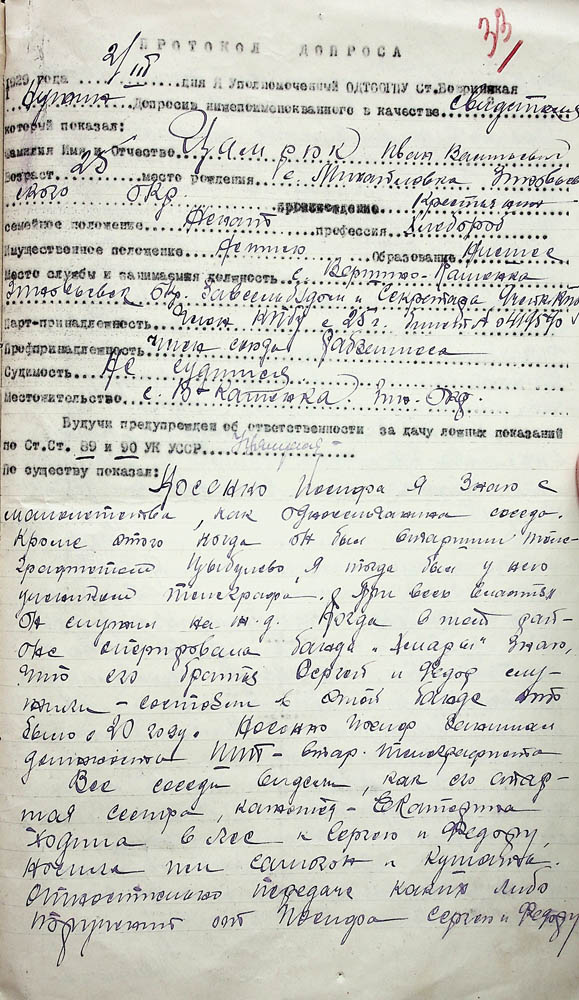 33
ПРОТОКОЛ ДОПРОСА
1929 года 2/III дня Я Уполномоченный ОДТООГПУ Ст.Бобринская
Допросив нижепоименованного в качестве свидетеля
который показал:
Фамилия Имя и Отчество Иван Васильевич
Возраст 25 место рождения с. Михайловка Зиновьев
ского окр. происхождение крестьянин
семейное положение женат профессия хлебороб
Имущественное положение Образование Низшее
Место службы и занимаемая должность с. Вертино-Каменка
Зиновьевск. окр. Завсельбудом и Секретарь
Парт-принадлежность Член с 25 г. билет №
Профпринадлежность член союза Рабземлеса
Судимость Не судился
Местожительство с. В-Каменка Зин. Окр.
Будучи предупрежден об ответственности за дачу ложных показаний
по Ст.Ст. 89 и 90 УК УССР
По существу показал: Иосифа я знаю с
малолетства, как односельчанина соседа.
Кроме этого когда он был старшим теле-
графистом Цыбулево, я тогда был у него
учеником телеграфа. При всех властях
он служил на ж.д. Когда в той рай-
оне оперировала банда "Хмары" знаю,
что его братья Сергей и Федор слу-
жили - состояли в этой банде это
было в 20 году. Иосиф занимал
должность ПТТ - стар. телеграфиста
Все соседи видели, как его стар-
шая сестра, кажется - Екатерина
ходила в лес к Сергею и Федору,
носила им самогон и кушанья.
Относительно передачи каких либо
поручений от Иосифа Сергею и Федору